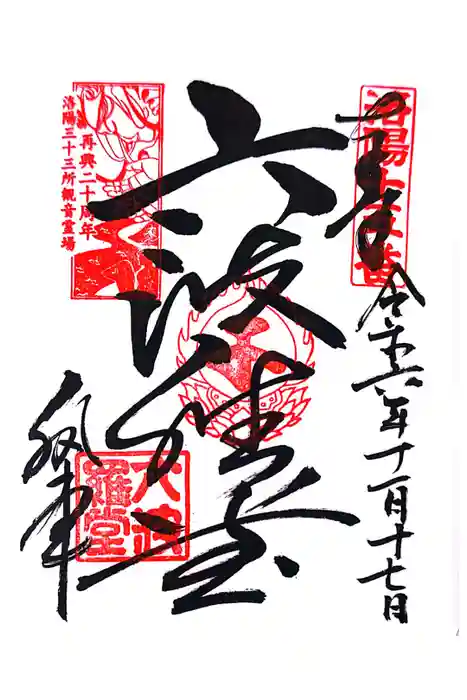 奉拝
洛陽十五番
令和六年十一月十七日
六波羅堂
再興二十周年
洛陽三十三所観音霊場
六波羅堂